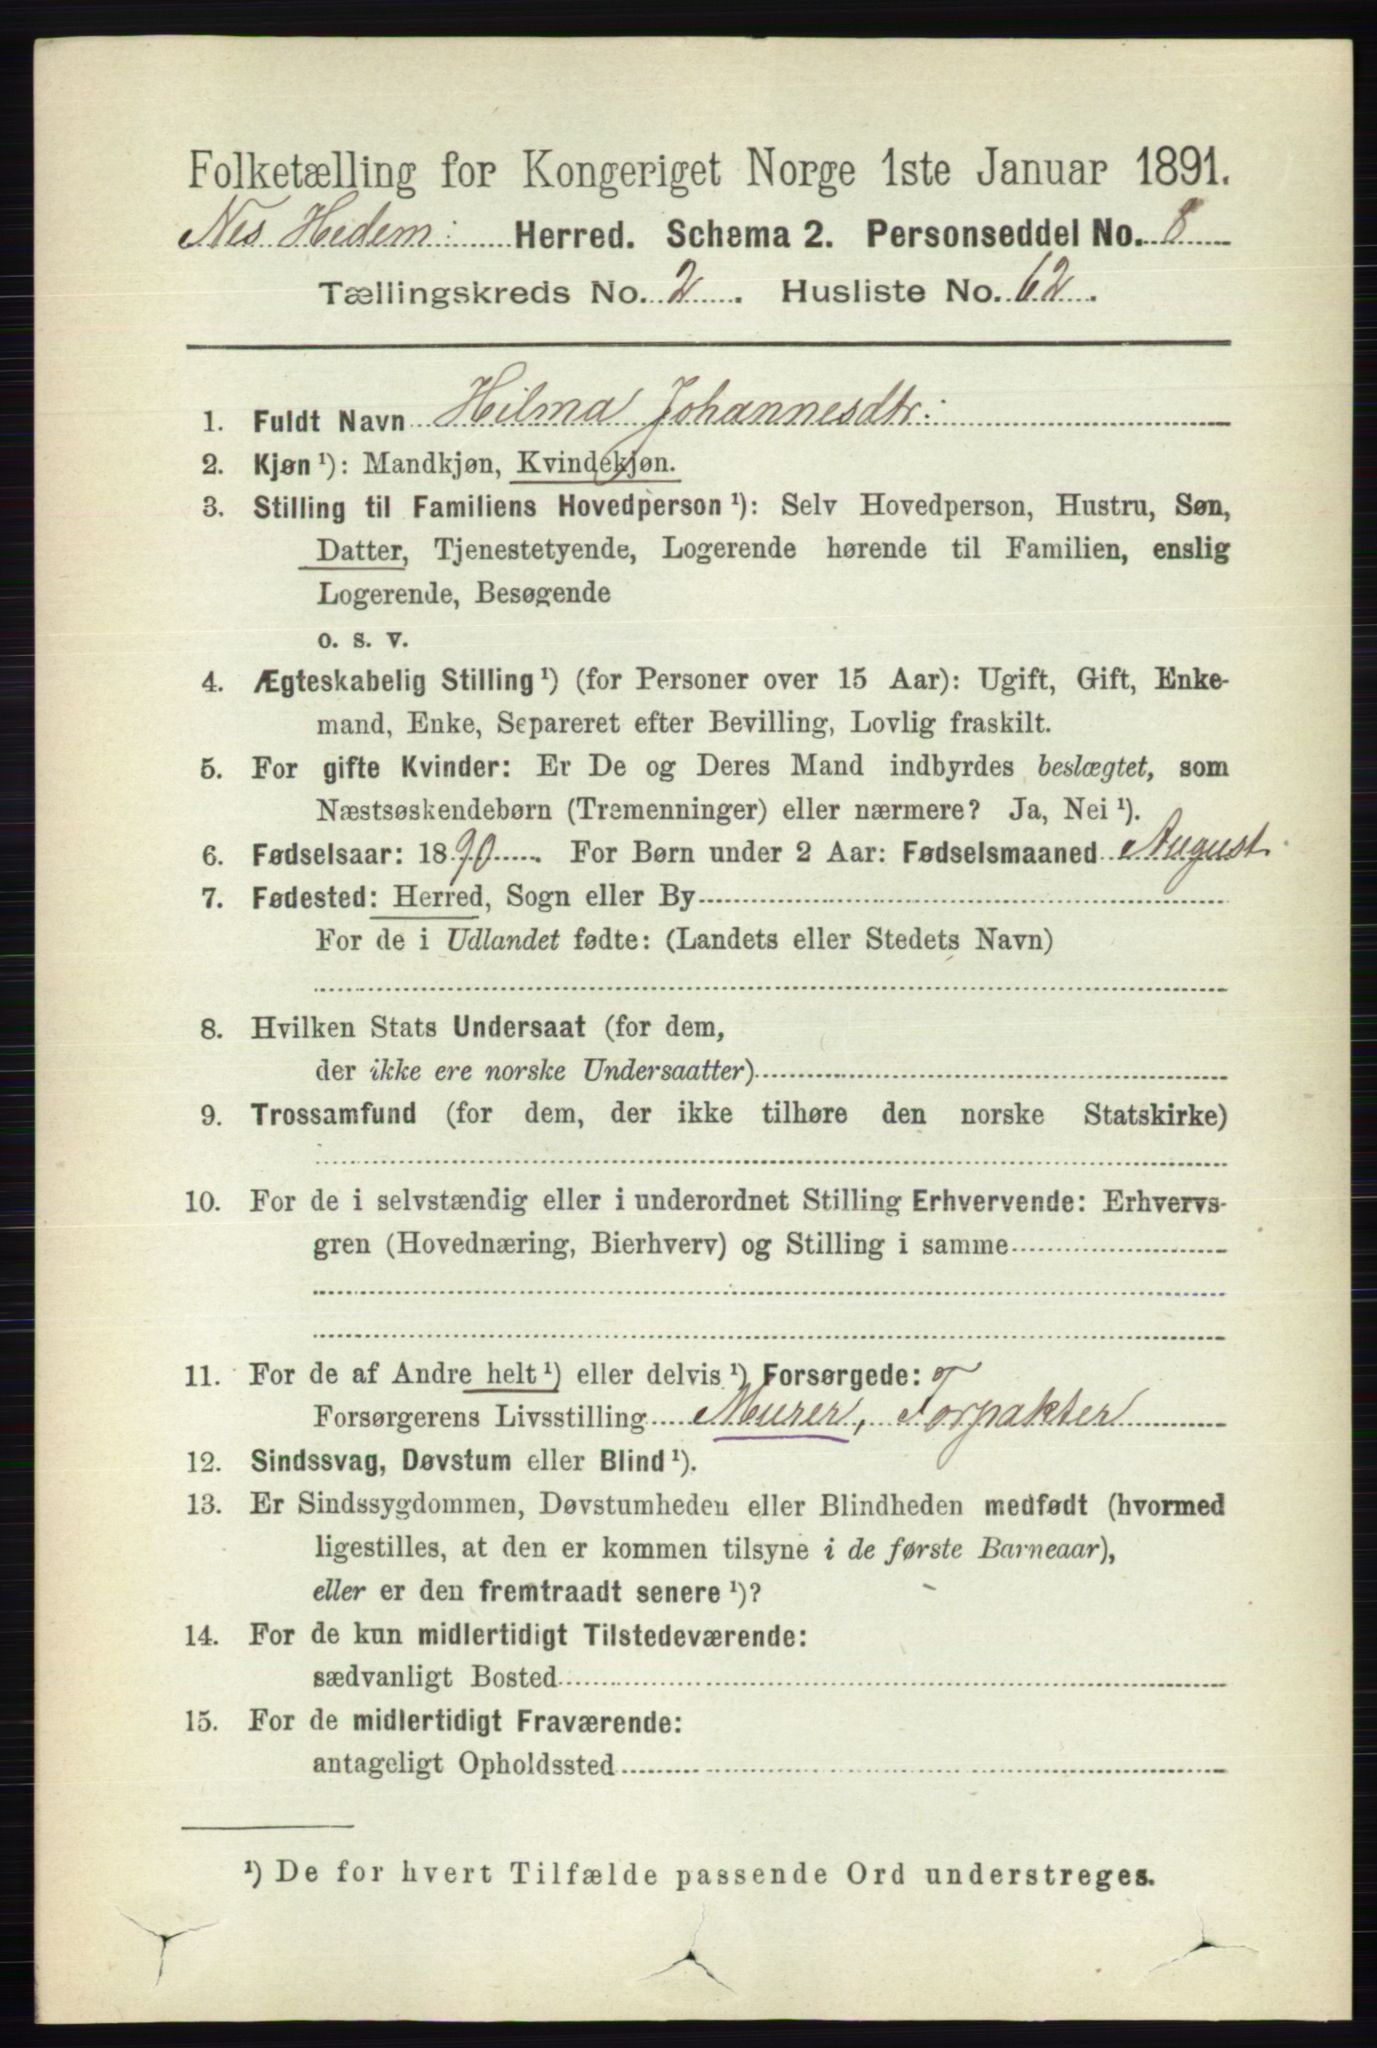 Folketælling for Kongeriget Norge 1ste Januar 1891.
Nes Hedem: Herred. Schema 2. Personseddel No. 8
Tællingskreds No. 2. Husliste No. 62.
1. Fuldt Navn Hilma Johannesdtr:
2. Kjøn ¹): Mandkjøn, Kvindekjøn.
3. Stilling til Familiens Hovedperson ¹): Selv Hovedperson, Hustru, Søn,
Datter, Tjenestetyende, Logerende hørende til Familien, enslig
Logerende, Besøgende
o. s. v.
4. Ægteskabelig Stilling ¹) (for Personer over 15 Aar): Ugift, Gift, Enke-
mand, Enke, Separeret efter Bevilling, Lovlig fraskilt.
5. For gifte Kvinder: Er De og Deres Mand indbyrdes beslægtet, som
Næstsøskendebørn (Tremenninger) eller nærmere? Ja, Nei ¹).
6. Fødselsaar: 1890. For Børn under 2 Aar: Fødselsmaaned August
7. Fødested: Herred, Sogn eller By
For de i Udlandet fødte: (Landets eller Stedets Navn)
8. Hvilken Stats Undersaat (for dem,
der ikke ere norske Undersaatter)
9. Trossamfund (for dem, der ikke tilhøre den norske Statskirke)
10. For de i selvstændig eller i underordnet Stilling Erhvervende: Erhvervs-
gren (Hovednæring, Bierhverv) og Stilling i samme
11. For de af Andre helt ¹) eller delvis ¹) Forsørgede:
Forsørgerens Livsstilling Murer, Forpakter
12. Sindssvag, Døvstum eller Blind ¹).
13. Er Sindssygdommen, Døvstumheden eller Blindheden medfødt (hvormed
ligestilles, at den er kommen tilsyne i de første Barneaar),
eller er den fremtraadt senere ¹)?
14. For de kun midlertidigt Tilstedeværende:
sædvanligt Bosted
15. For de midlertidigt Fraværende:
antageligt Opholdssted
¹) De for hvert Tilfælde passende Ord understreges.